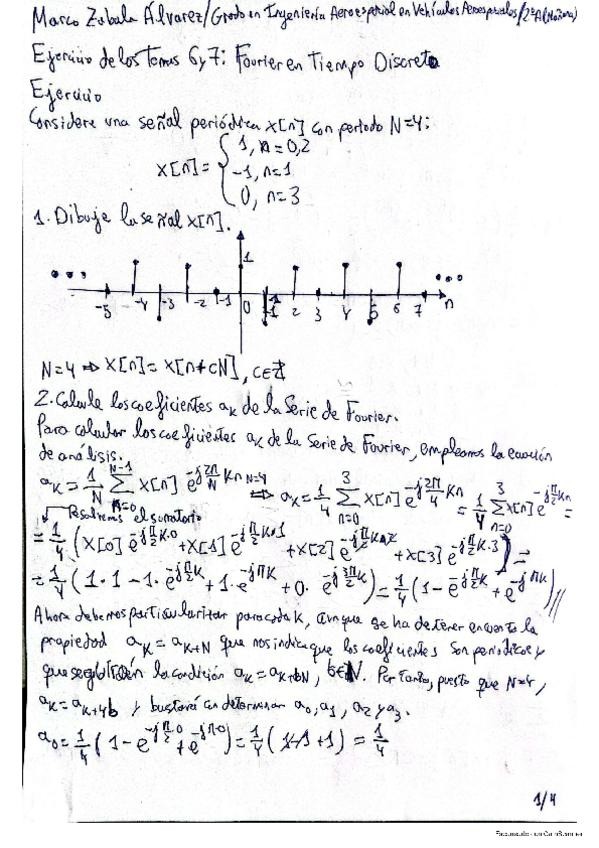 Marco Zabala Álvarez/Grado en Ingeniería Aeroespacial en Vehículos Aeroespaciales/2ºA(Mañana)
Ejercicio de los Temas 6 y 7: Fourier en Tiempo Discreto
Ejercicio
Considere una señal periódica x[n] con periodo N=4:
x[n] = { 1, n=0,2
-1, n=1
0, n=3
1. Dibuje la señal x[n].
1
-5 -4 -3 -2 -1 0 -1 2 3 4 5 6 7 n
N=4 ⇒ x[n] = x[n+cN], c∈Z
2. Calcule los coeficientes aₖ de la Serie de Fourier.
Para calcular los coeficientes aₖ de la Serie de Fourier, empleamos la ecuación
de análisis.
aₖ = 1/N Σ_{n=0}^{N-1} x[n] e^{-j 2π/N Kn} N=4 ⇒ aₖ = 1/4 Σ_{n=0}^{3} x[n] e^{-j 2π/4 Kn} = 1/4 Σ_{n=0}^{3} x[n] e^{-j π/2 Kn} =
Resolvemos el sumatorio
= 1/4 (x[0] e^{-j π/2 K·0} + x[1] e^{-j π/2 K·1} + x[2] e^{-j π/2 K·2} + x[3] e^{-j π/2 K·3}) =
= 1/4 (1·1 - 1·e^{-j π/2 K} + 1·e^{-jπK} + 0·e^{-j 3π/2 K}) = 1/4 (1 - e^{-j π/2 K} + e^{-jπK}) //
Ahora debemos particularizar para cada K, aunque se ha de tener en cuenta la
propiedad aₖ = aₖ₊N que nos indica que los coeficientes son periódicos y
que la condición aₖ = aₖ₊bN, b∈N. Por tanto, puesto que N=4,
aₖ = aₖ₊4b y bastará con determinar a₀, a₁, a₂ y a₃.
a₀ = 1/4 (1 - e^{-j π/2·0} + e^{-jπ·0}) = 1/4 (1-1+1) = 1/4
1/4
Escaneado con CamScanner